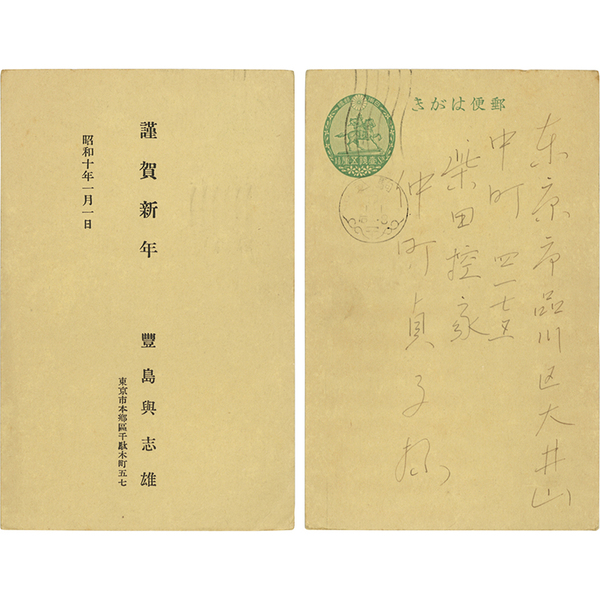 謹賀新年
昭和十年一月一日
豐島與志雄
東京市本鄕區千駄木町五七
郵便はがき
东京市品川区大井山
中町四一七五
柴田控家
仲町貞子様